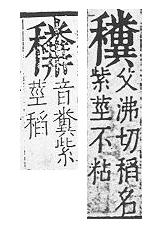 䆏
父沸切稻名
紫莖不粘
音糞紫
莖稻